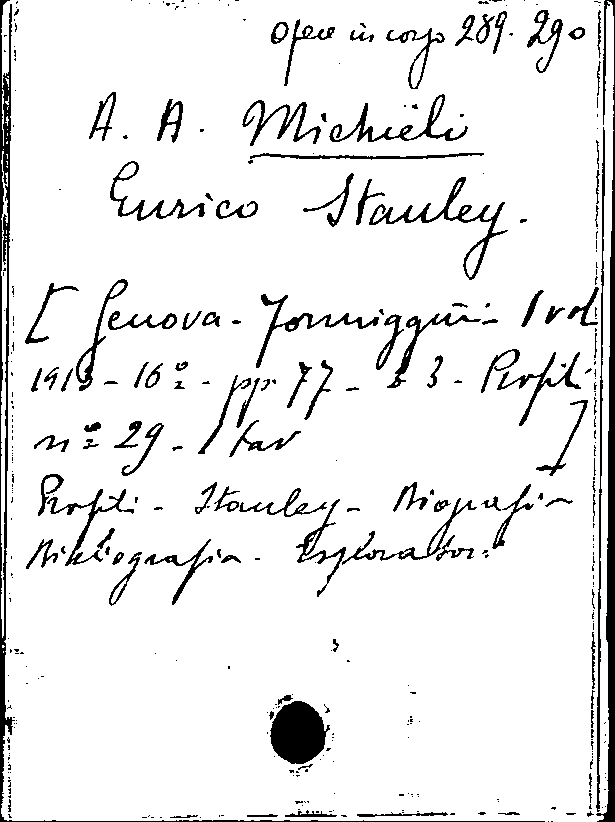 Opere in corso 289. 290
A. A. Michieli
Enrico Stanley.
[ Genova - Formiggini - 1 vol
1913 - 16º - pp. 77 - 3 - Profili
nº 29 - 1 tav ]
Profili - Stanley - Biografia
Bibliografia - Esploratori